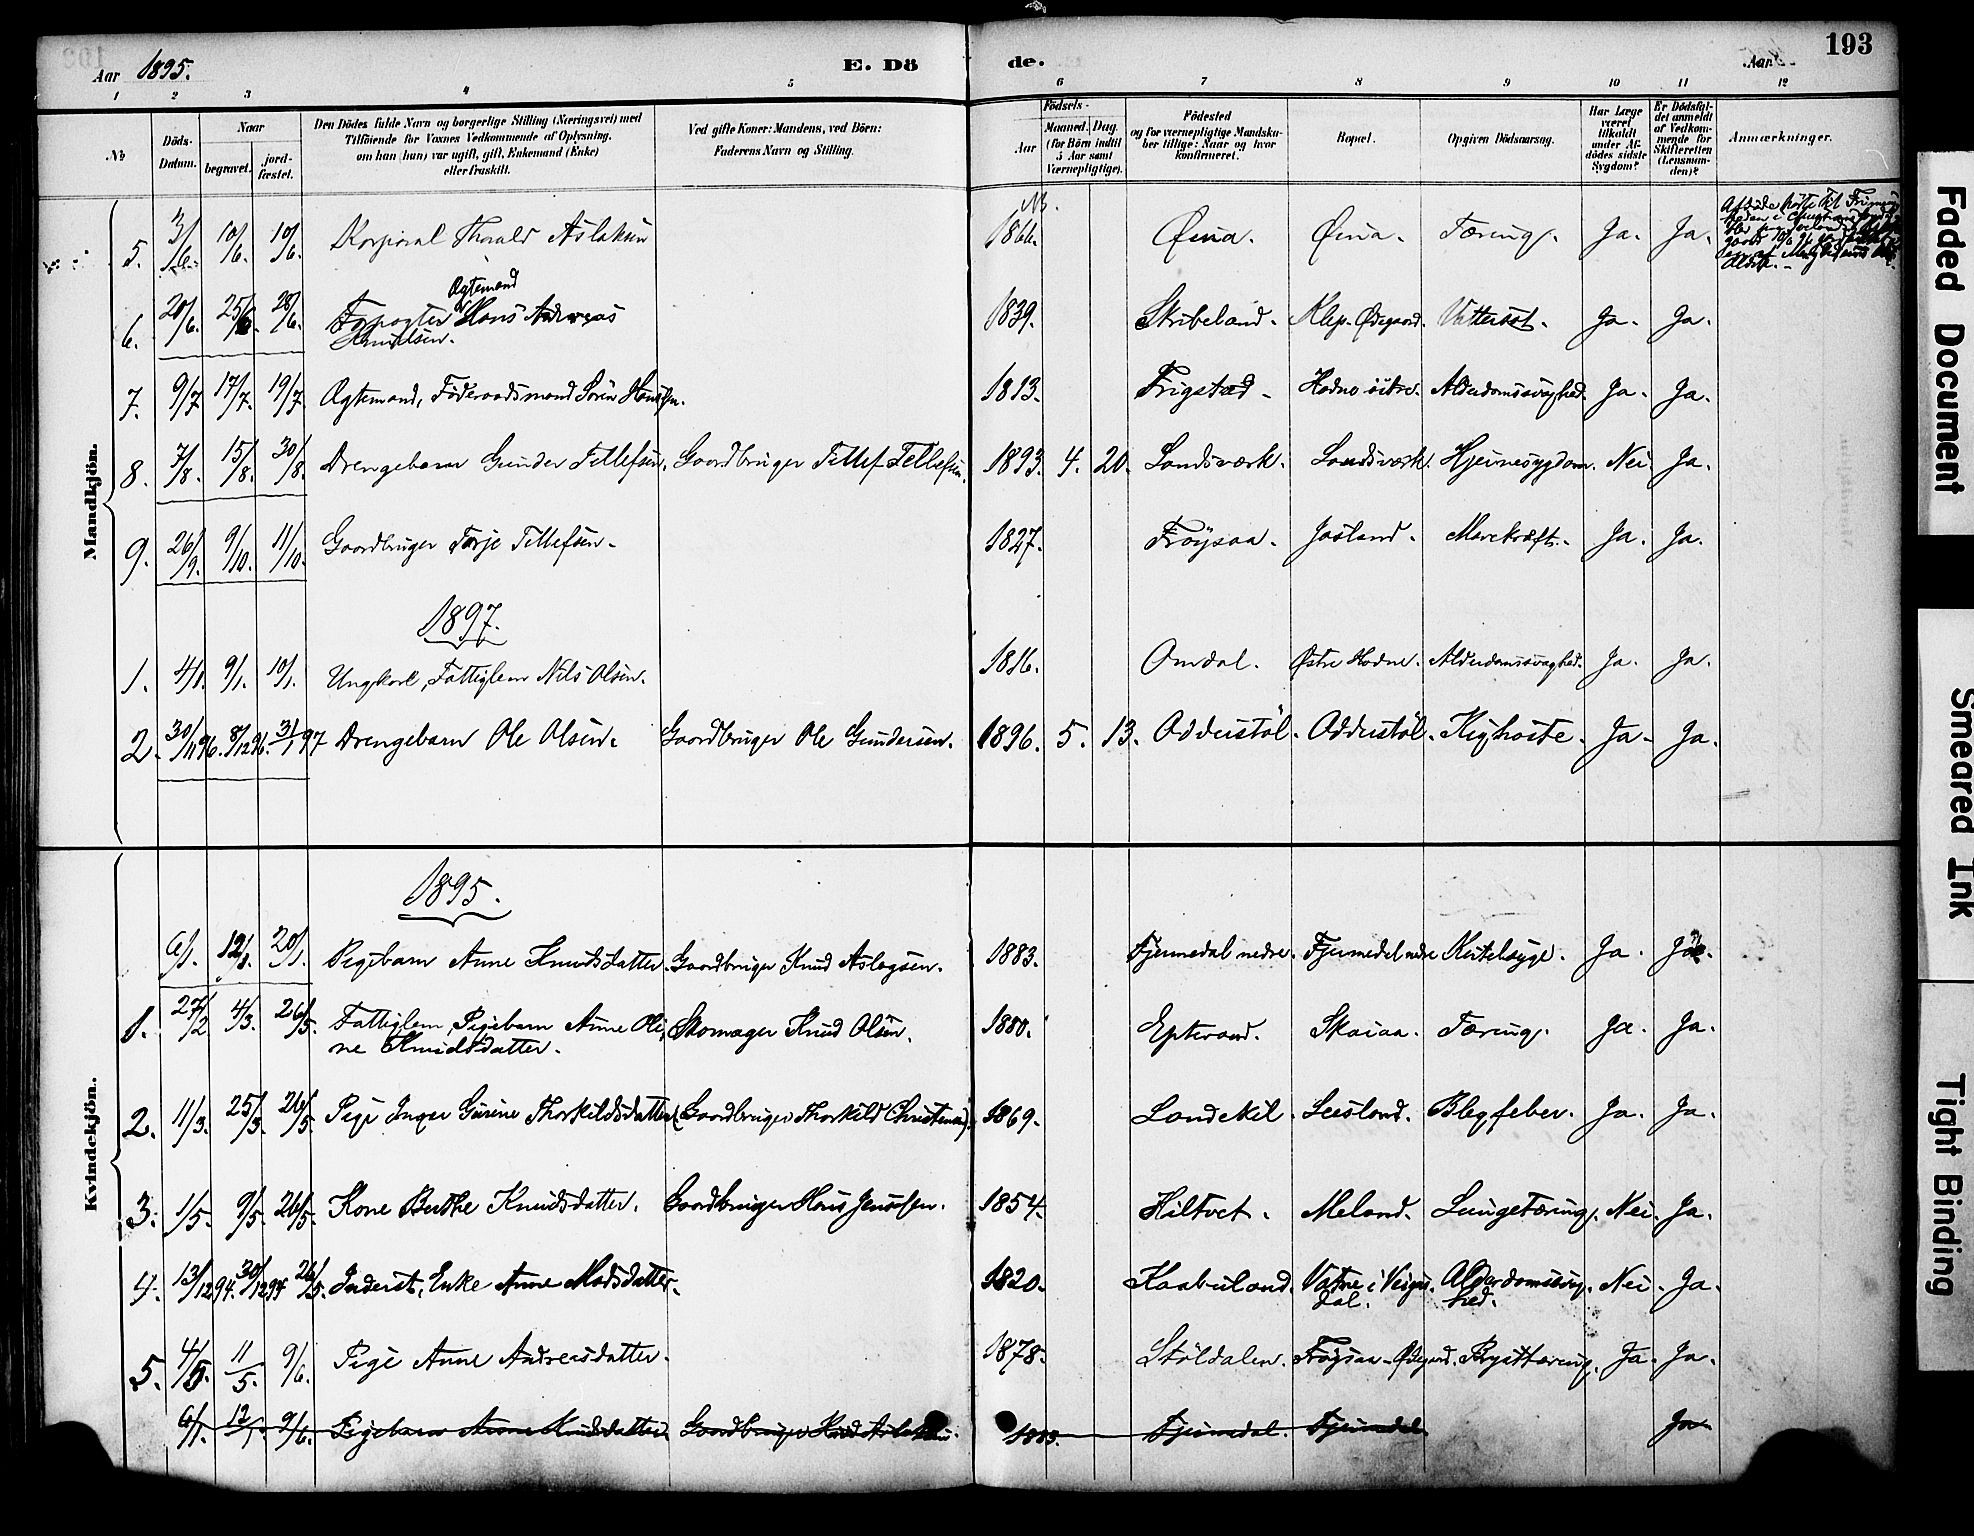 193
Aar 1895. E. Dö de. Aar
1 2 3 4 5 6 7 8 9 10 11 12
№ Döds-Datum. Naar begravet. jordfæstet. Den Dödes fulde Navn og borgerlige Stilling (Næringsvei) med Tilföiende for Voxnes Vedkommende af Oplysning, om han (hun) var ugift, gift, Enkemand (Enke) eller fraskilt. Ved gifte Koner: Mandens, ved Börn: Faderens Navn og Stilling. Födsels- Aar Maaned. Dag. (for Börn indtil 5 Aar samt Værnepligtige). Födested og for værnepligtige Mandskaber tillige: Naar og hvor konfirmeret. Bopæl. Opgiven Dödsaarsag. Har Læge været tilkaldt under Afdödes sidste Sygdom? Er Dödsfaldet anmeldt af Vedkommende for Skifteretten (Lensmanden)? Anmærkninger.
Mandkjön.
5. 3/6. 10/6. 10/6. Korporal Thorald Aslaksen Øina. Øina. Tæring. Ja. Ja.
6. 20/6. 25/6. 28/6. Ægtemand Forpagter Hans Andreas
Knudsen. 1839. Skribeland. Klep. Ødegaard. Vattersot. Ja. Ja.
7. 9/7 17/7. 19/7 Ægtemand, Föderaadsmand Sören Hansen. 1813. Frigstad. Hodne östre. Alderdomssvaghed. Ja. Ja.
8. 7/8. 15/8. 30/8. Drengebarn Gunder Tellefsen. Gaardbruger Tellef Tellefsen. 1893. 4. 20. Landsværk. Landsværk. Hjernesygdom. Nei. Ja.
9. 26/9. 9/10. 11/10. Gaardbruger Terje Tellefsen. 1827. Fröysaa. Jaaland. Mavekræft. Ja. Ja.
1897.
1. 4/1. 9/1. 10/1. Ungkarl, Fattiglem Nils Olsen. 1816. Omdal. Østre Hodne. Alderdomssvaghed. Ja. Ja.
2. 30/11 96. 8/12 96. 3/1 97 Drengebarn Ole Olsen. Gaardbruger Ole Gundersen. 1896. 5. 13. Oddestöl. Oddestöl. Kighoste. Ja. Ja.
Kvindekjön.
1895.
6/1. 12/1. 20/1. Pigebarn Anne Knudsdatter. Gaardbruger Knud Aslagsen. 1883. Fjermedal nedre. Fjermedal nedre Ja.
1. 27/2 4/3. 26/5. Fattiglem, Pigebarn Anne Oli-
ne Knudsdatter. Skomager Knud Olsen. 1880. Epterand. Skaiaa. Tæring. Ja. Ja.
2. 11/3. 25/3. 26/5. Pige Inger Gurine Thorkildsdatter (Gaardbruger Thorkild Christensen). 1869. Landekil. Leisland. Blegfeber. Ja. Ja.
3. 1/5. 9/5. 26/5. Kone Berthe Knudsdatter. Gaardbruger Hans Jenssen. 1854. Hiltvet. Meland. Lungetæring. Nei. Ja.
4. 13/12 94. 30/12 94 26/5. Inderst, Enke Anne Madsdatter. 1820. Kaabuland. Vatne i Veigus- Alderdomssvag-
dal. hed. Nei. Ja.
5. 4/5. 11/5. 9/6. Pige Anne Andreasdatter. 1878. Stöldalen. Fröysaa-Ødegaard. Brysttæring. Ja. Ja.
6/1. 12/1. 9/6. Pigebarn Anne Knudsdatter. Gaardbruger Knud Aslaksen. 1883. Fjermedal. Fjermedal Ja
Faded Document
Smeared Ink
Tight Binding